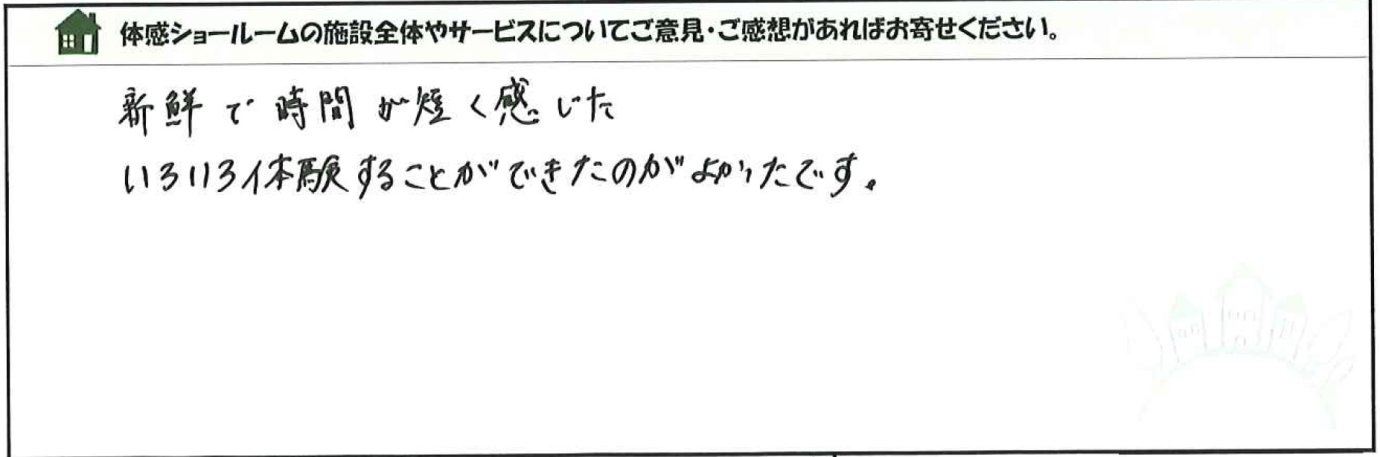 体感ショールームの施設全体やサービスについてご意見・ご感想があればお寄せください。
新鮮で時間が短く感じた
いろいろ体験することができたのがよかったです。